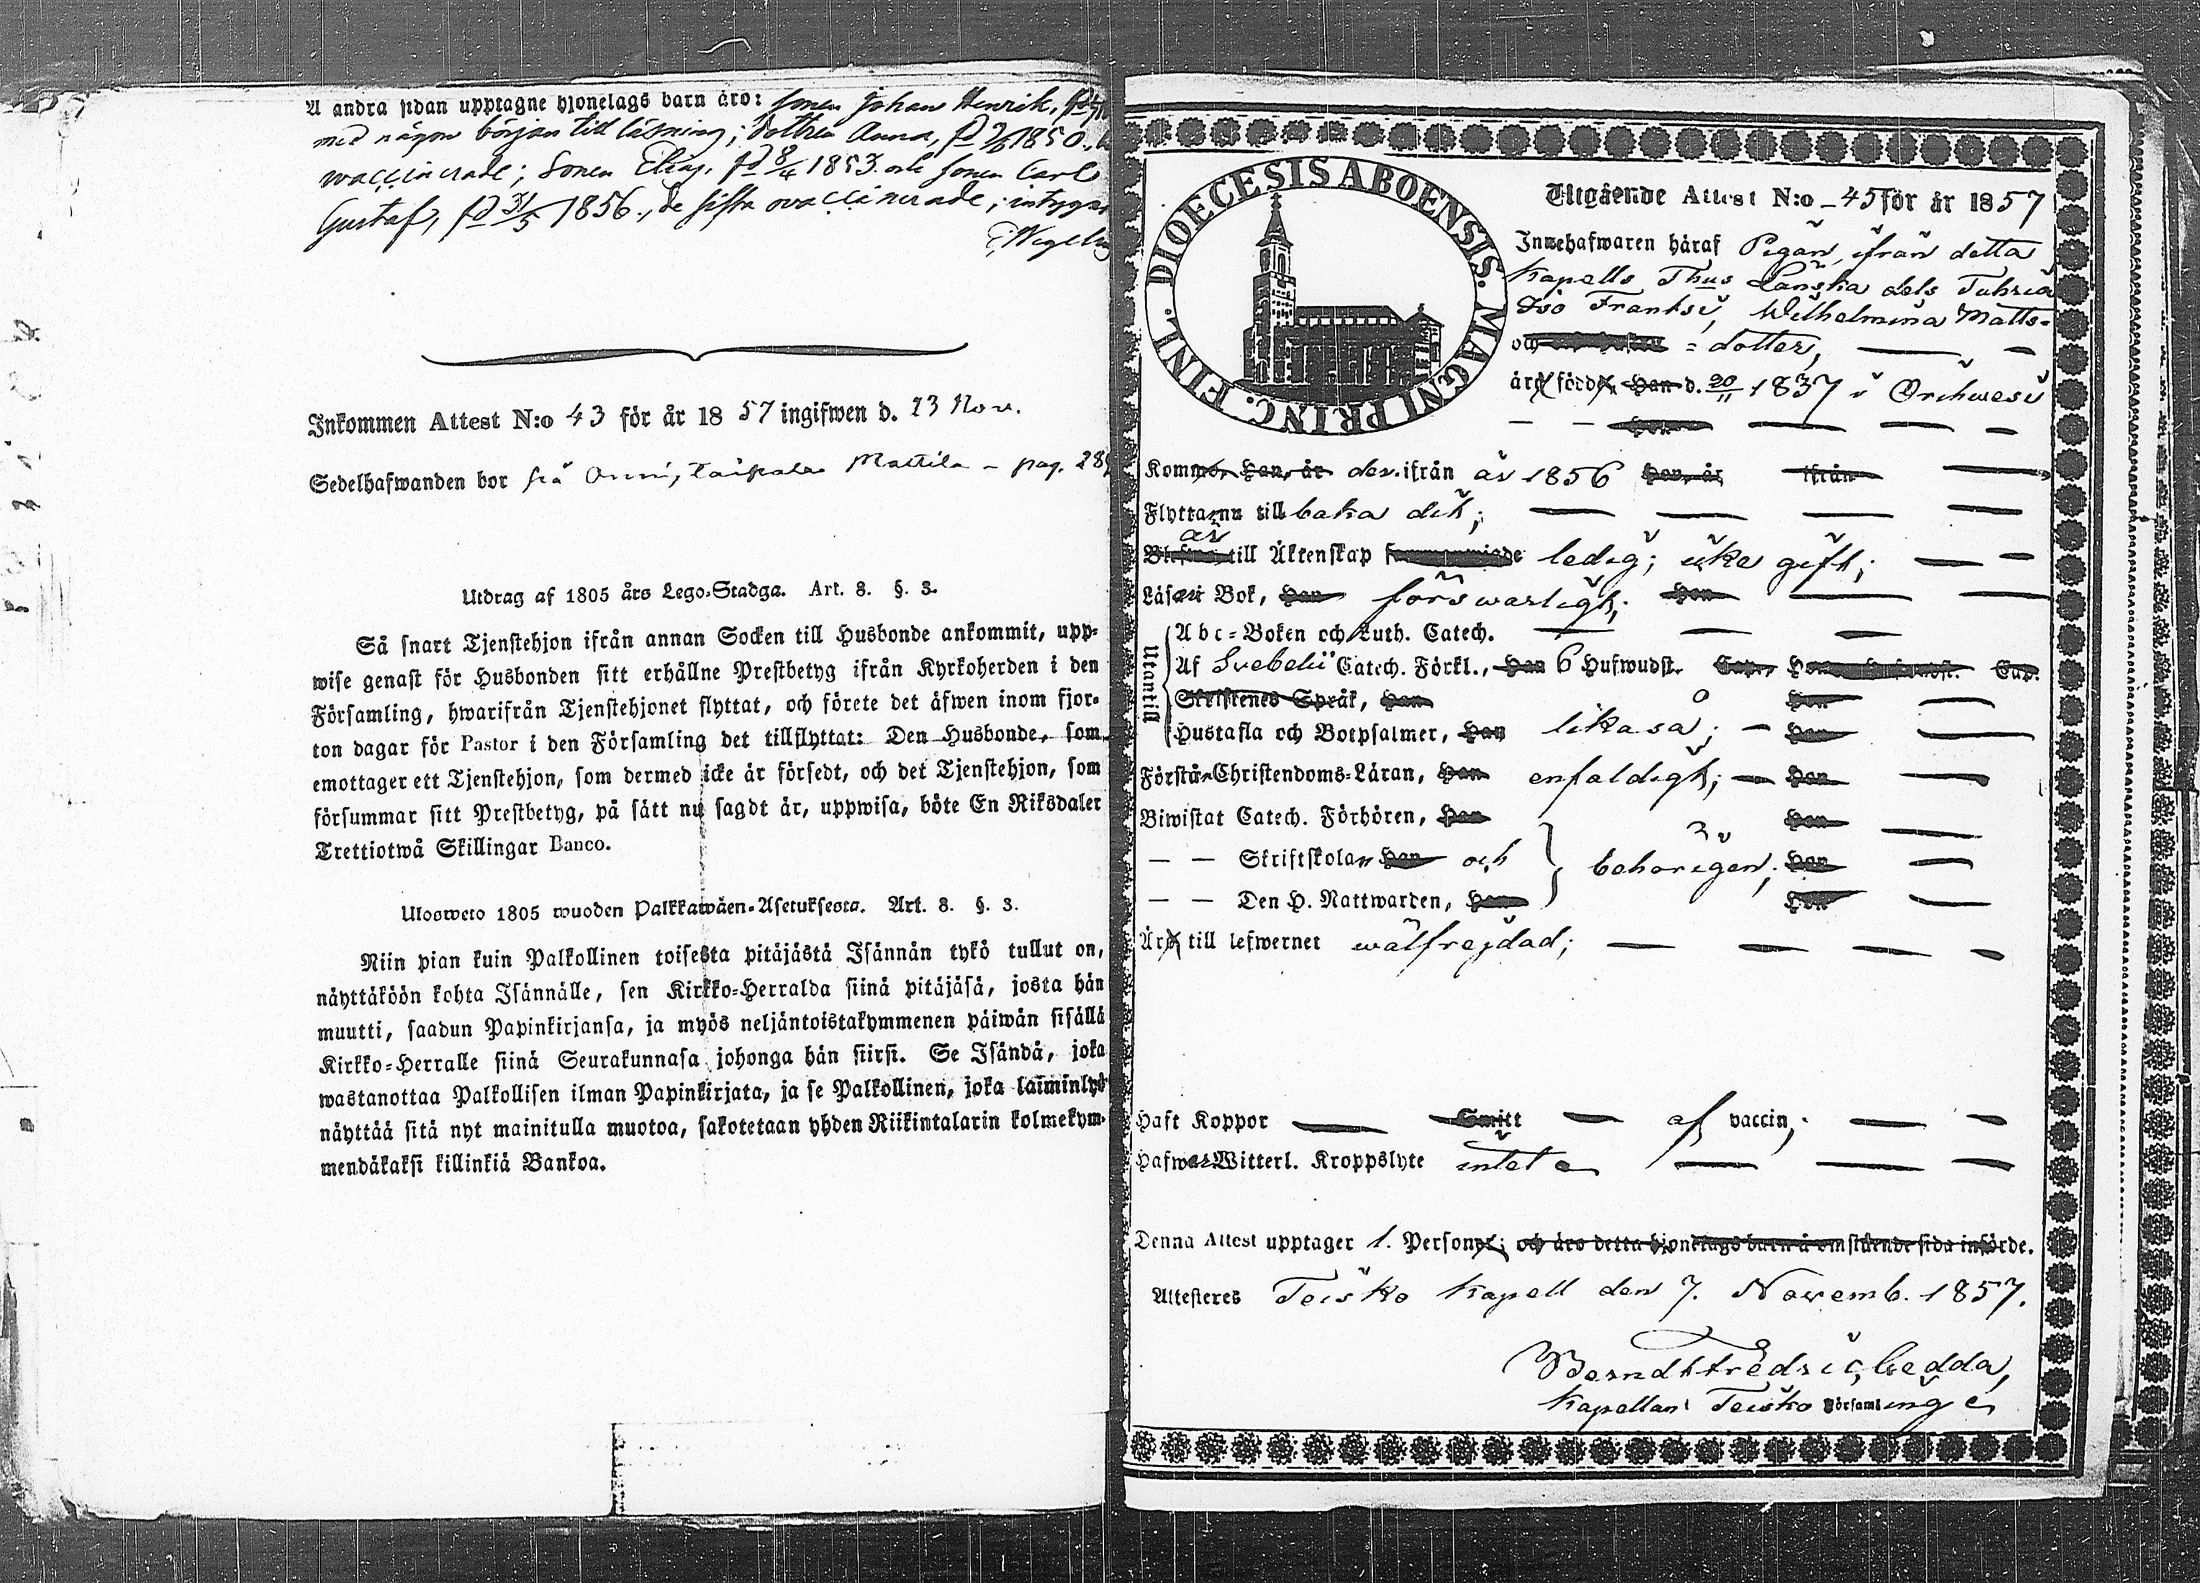 Å andra sidan upptagne hjonelags barn äro: sonen Johan Henrik,
med någon början till läsning; dottren Anna, fd 1850.,
vaccinerade; Sonen Elias, fd 8/4 1853 och sonen Carl
Gustaf, fd 31/5 1856., de sista ovaccinerade; intygar
Inkommen Attest N:o 43 för år 1857 ingifwen d. 23 Nov.
Sedelhafwanden bor på Onni, Taipale Mattila - pag. 28
Utdrag af 1805 års Lego-Stadga. Art. 8. §. 3.
Så snart Tjenstehjon ifrån annan Socken till Husbonde ankommit, upp-
wise genast för Husbonden sitt erhållne Prestbetyg ifrån Kyrkoherden i den
Församling, hwarifrån Tjenstehjonet flyttat, och förete det äfwen inom fjor-
ton dagar för Pastor i den Församling det tillflyttat: Den Husbonde, som
emottager ett Tjenstehjon, som dermed icke är försedt, och det Tjenstehjon, som
försummar sitt Prestbetyg, på sätt nu sagdt är, uppwisa, böte En Riksdaler
Trettiotwå Skillingar Banco.
Ulosweto 1805 wuoden Palkkawäen-Asetuksesta. Art. 8. §. 3.
Niin pian kuin Palkollinen toisesta pitäjästä Isännän tykö tullut on,
näyttäköön kohta Isännälle, sen Kirkko-Herralda siinä pitäjäsä, josta hän
muutti, saadun Papinkirjansa, ja myös neljäntoistakymmenen päiwän sisällä
Kirkko-Herralle siinä Seurakunnasa johonga hän siirsi. Se Isändä, joka
wastanottaa Palkollisen ilman Papinkirjata, ja se Palkollinen, joka laiminlyö
näyttää sitä nyt mainitulla muotoa, sakotetaan yhden Riikintalarin kolmekym-
mendäkaksi killinkiä Bankoa.
DIOECESIS ABOENSIS. MAGNI PRINC. FINL.
Utgående Attest N:o 45 för år 1857
Innehafwaren häraf Pigan, ifrån detta
Kapells Thus Länska dels
Iso Frantsi, Wilhelmina Matts-
och = dotter,
är född d. 20/11 1837 i Orihwesi
Komm den ifrån år 1856 Hon, är ifrån
Flyttar nu tillbaka dit;
är till Äktenskap ledig; icke gift;
Läsar i Bok, Han förswarligt; Hon
Utantill
Abc-Boken och Luth. Catech.
Af Svebelii Catech. Förkl., Han 6 Hufwudst. Cap. Cap.
Skriftenes Språk, Han Hon
Hustafla och Botpsalmer, Han likaså; Hon
Förstår Christendoms-Läran, Han enfaldigt; Hon
Biwistat Catech. Förhören, Han Hon
— — Skriftskolan Han och behörigen; Hon
— — Den H. Nattwarden, Han Hon
Är till lefwernet wälfrejdad;
Haft Koppor Smitt af vaccin;
Hafwer Witterl. Kroppslyte intet
Denna Attest upptager 1. Person; och äro detta hjonelags barn å omstående sida införde.
Attesteres Teisko Kapell den 7. Novemb. 1857.
Berndt Fredric Gedda,
Kapellan i Teisko Församling